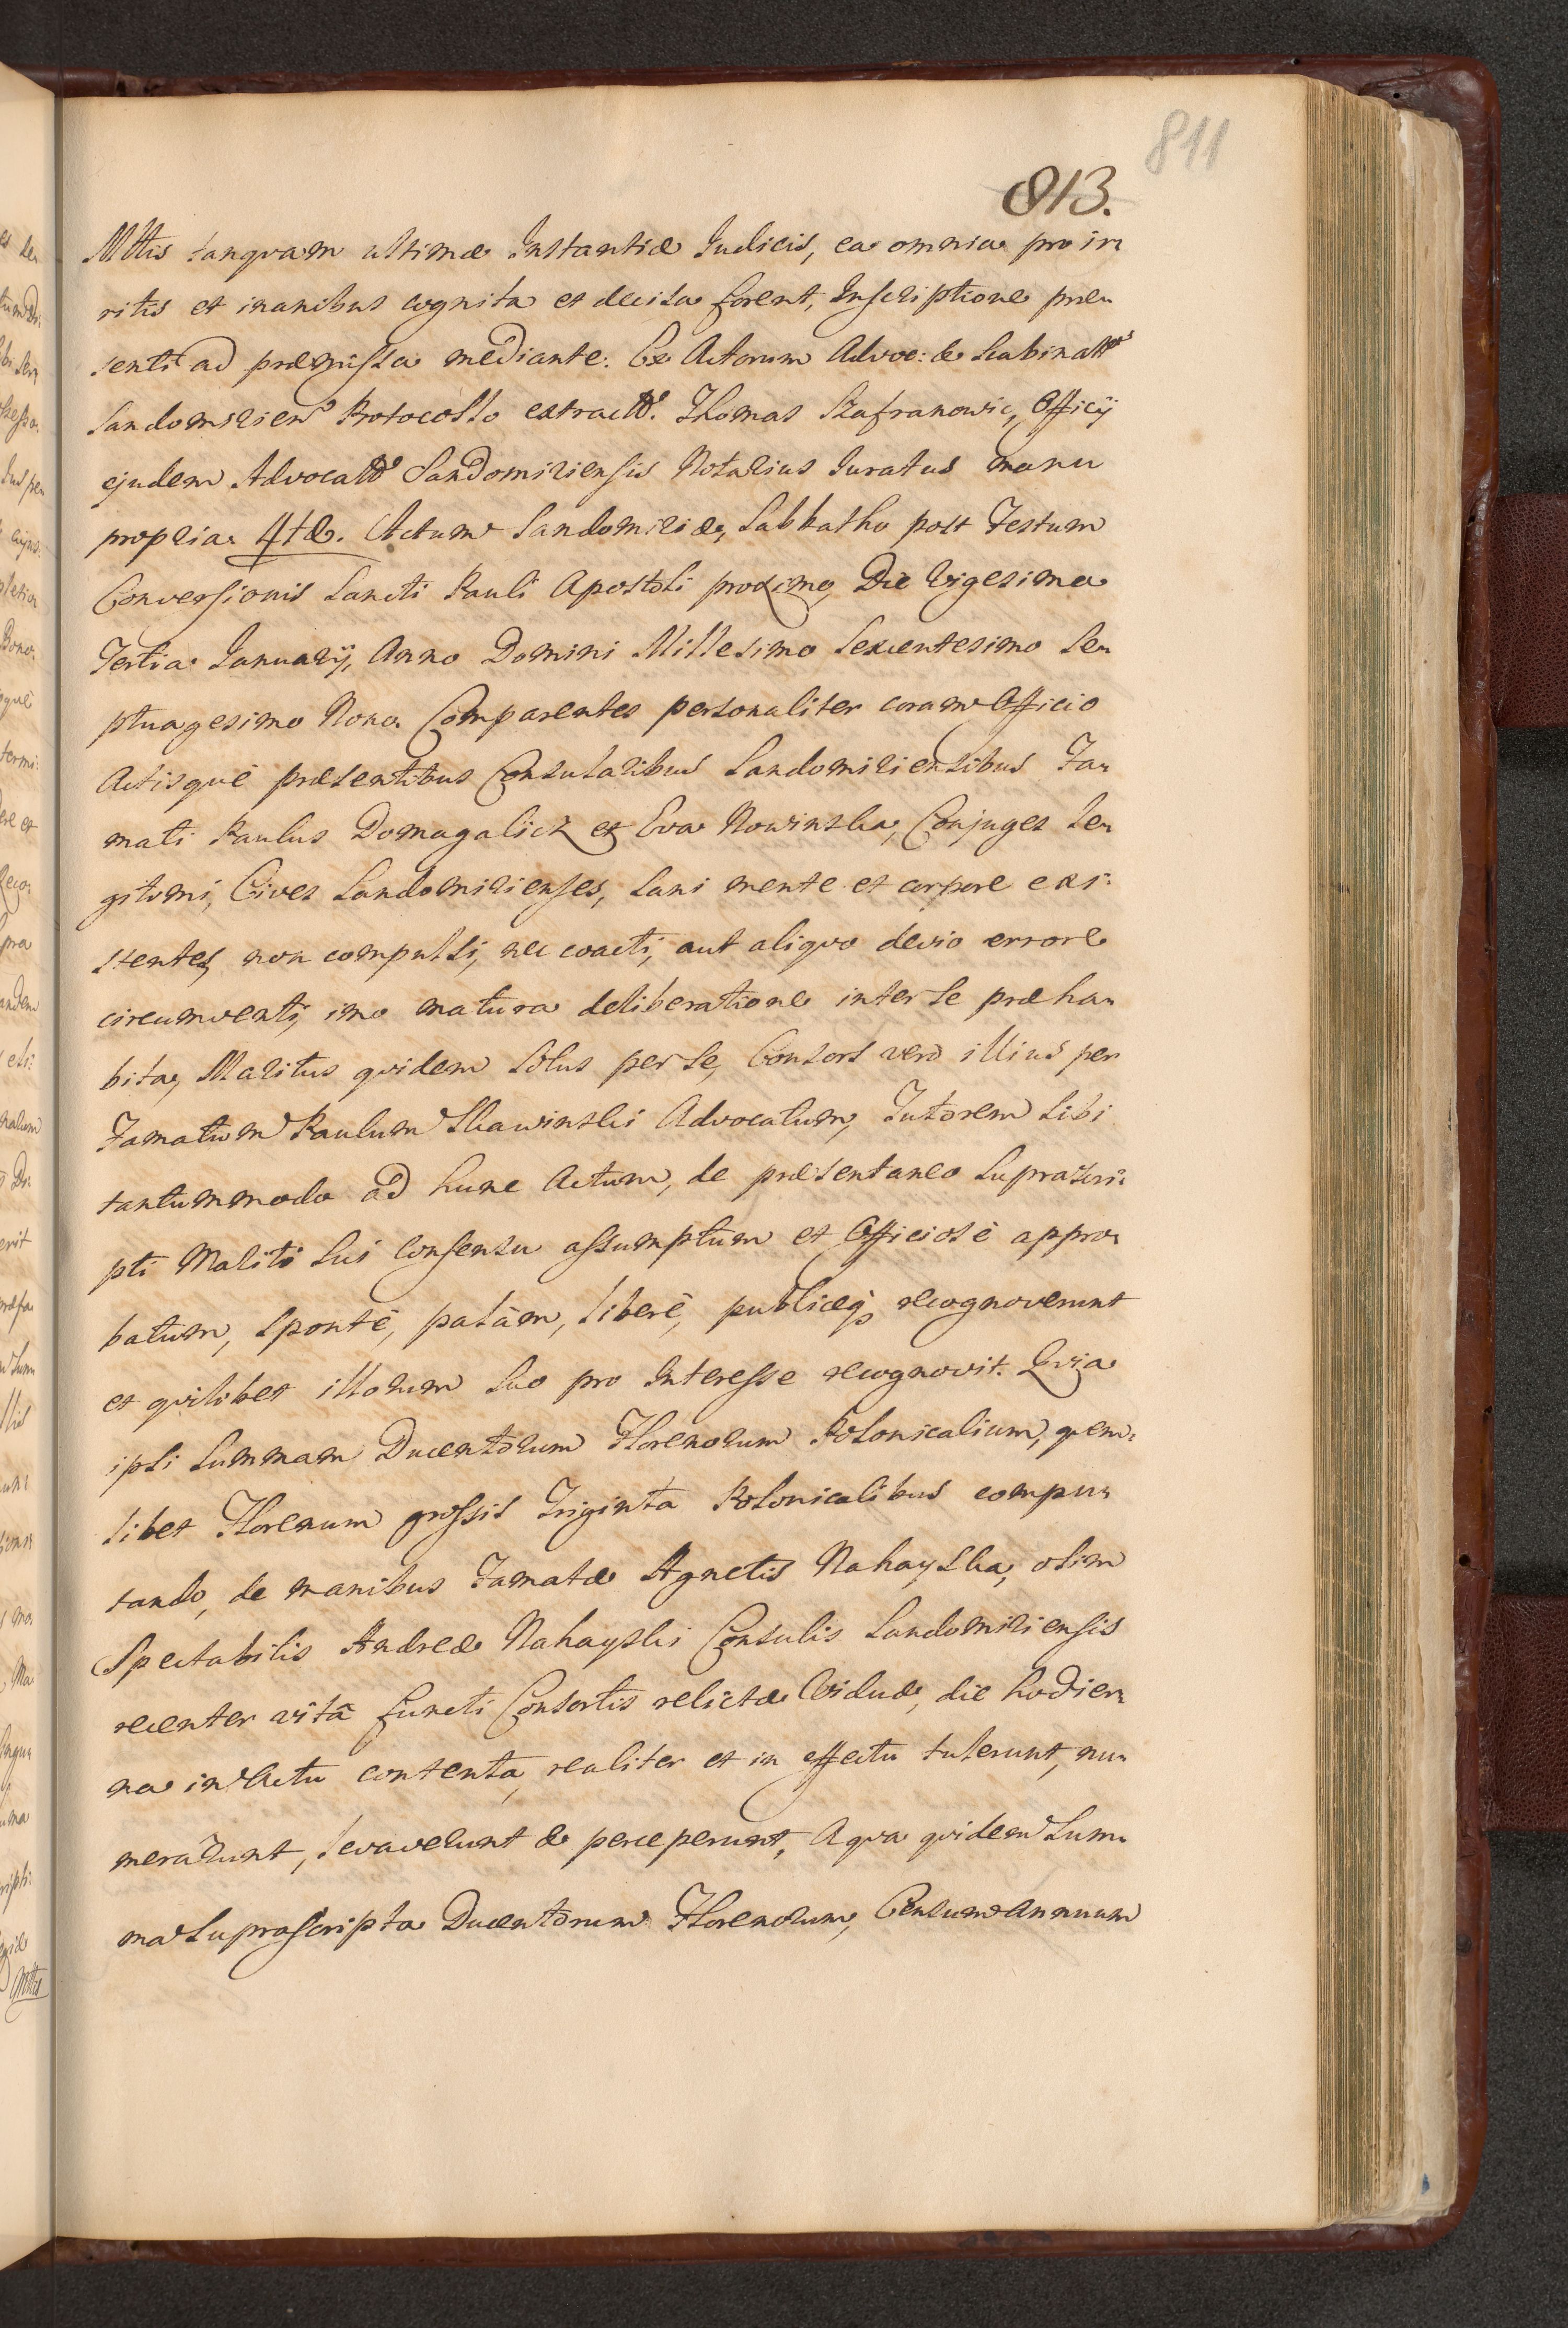 811
813.
Mttis tanqvam ultimæ Instantiæ Iudicis, ea omnia pro ir„
ritis et inanibus cognita et decisa forent, Inscriptione præ„
senti ad præmissa mediante. Ex Actorum Advoc: & Scabinattus
Sandomirien Protocollo extractt. Thomas Szafranowic, Officij
ejudem Advocatt Sandomiriensis Notarius Iuratus manu
propria. Actum Sandomiriæ, Sabbatho post Festum
Conversionis Sancti Pauli Apostoli proximo, Die Vigesima
Tertia Ianuarij, Anno Domini Millesimo Sexcentesimo Se„
ptuagesimo Nono. Comparentes personaliter coram Officio
Actisquè præsentibus Consularibus Sandomiriensibus Fa„
mati Paulus Domagalicz et Eva Nowinska, Conjuges Le„
gitimi, Cives Sandomirienses, sani mente et corpore exi:
stentes, non compulsi, nec coacti, aut aliqvo devio errore
circumventi, imo matura deliberatione inter se præha„
bita, Maritus qvidem solus per se, Consors verò illius per
Famatum Paulum Skawinski Advocatum, Tutorem sibi
tantummodo ad hunc Actum, de præsentaneo suprascri:
pti Mariti sui consensu assumptum et Officiosè appro„
batum, spontè, palàm, liberè, publicæq; recognoverunt
et qvilibet illorum suo pro Interesse recognovit. Qvia
ipsi Summam Ducentorum Florenorum Polonicalium, qvem:
libet Florenum grossis Triginta Polonicalibus compu„
tando, de manibus Famatæ Agnetis Nahayska, olim
Spectabilis Andreæ Nahayski Consulis Sandomiriensis
recenter vitâ functi Consortis relictæ Viduæ, die hodier„
na in Actu contenta, realiter et in effectu tulerunt, nu„
merarunt, levaverunt & perceperunt, A qva qvidem Sum„
ma Suprascripta Ducentorum Florenorum, Censum Annuum